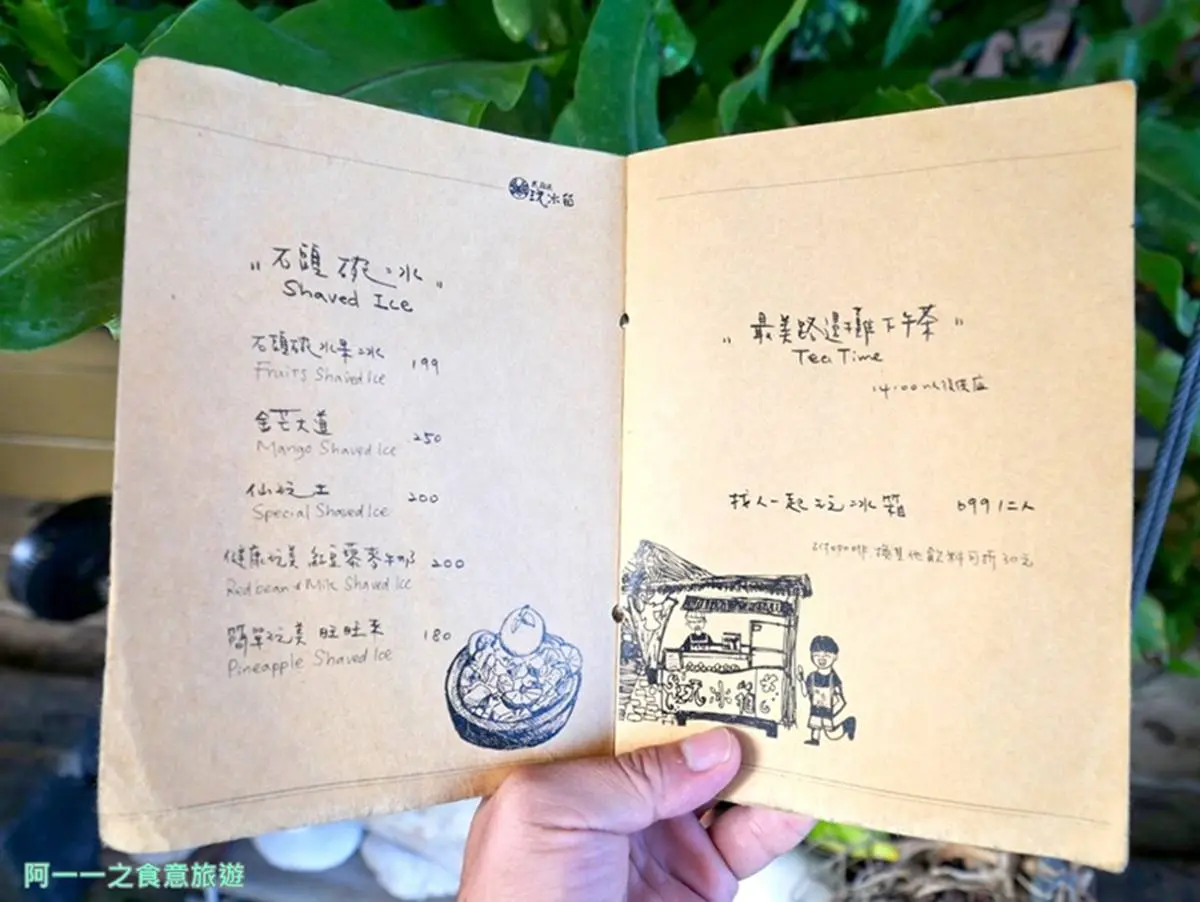 玩冰箱
"石頭碗冰"
Shaved Ice
石頭碗水果冰 199
Fruits Shaved Ice
金芒大道 250
Mango Shaved Ice
仙玩土 200
Special Shaved Ice
健康玩美 紅豆蕎麥牛奶 200
Red bean & Milk Shaved Ice
簡單玩美 旺旺來 180
Pineapple Shaved Ice
"最美路邊攤下午茶"
Tea Time
14:00以後供應
找人一起玩冰箱 699/二人
換其他飲料可折30元
玩冰箱
阿一一之食意旅遊